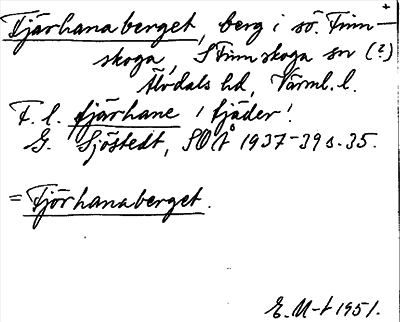 +
Fjärhanaberget, berg i sö. Finn-
skoga, S Finnskoga sn (?)
Älvdals hd, Värml. l.
F. l. fjärhane 'fjäder'.
G. Sjöstedt, SOÅ 1937-39 s. 35.
= Fjörhanaberget.
E. M-t 1951.